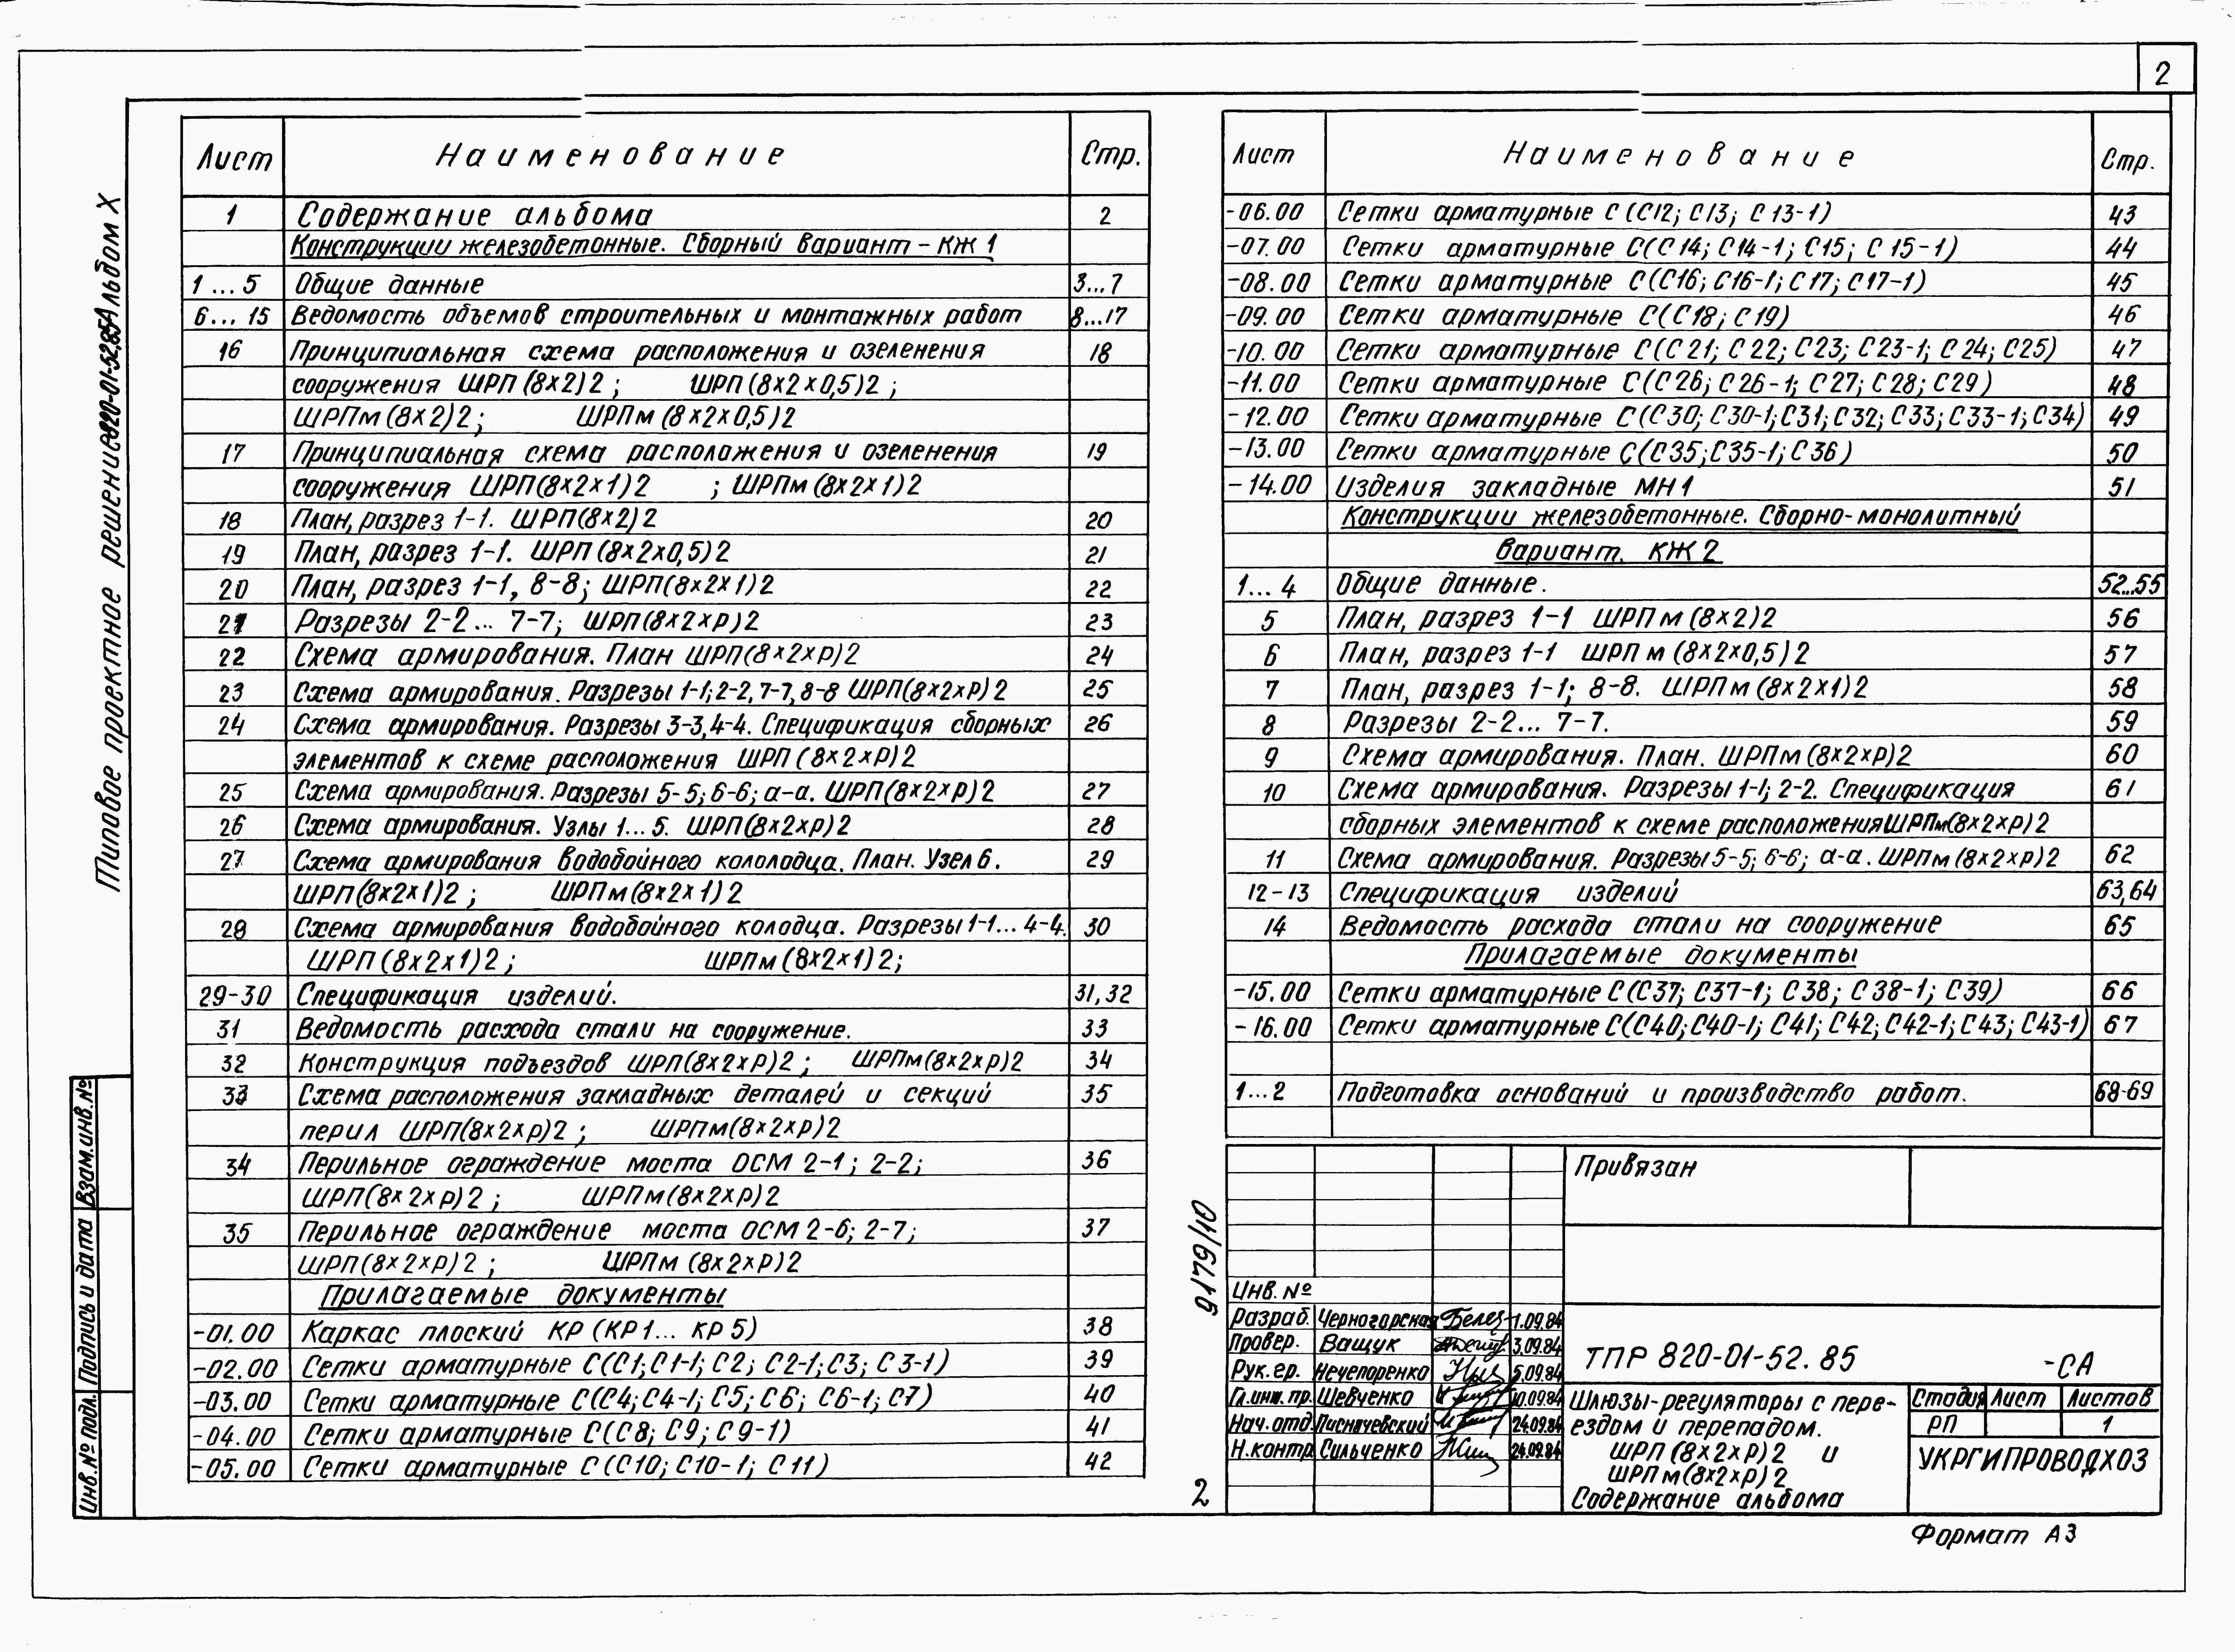 2
Лист Наименование Стр.
1 Содержание альбома 2
Конструкции железобетонные. Сборный вариант - КЖ 1
1...5 Общие данные 3...7
6...15 Ведомость объемов строительных и монтажных работ 8...17
16 Принципиальная схема расположения и озеленения 18
сооружения ШРП (8×2)2; ШРП (8×2×0,5)2;
ШРПм (8×2)2; ШРПм (8×2×0,5)2
17 Принципиальная схема расположения и озеленения 19
сооружения ШРП(8×2×1)2 ; ШРПм (8×2×1)2
18 План, разрез 1-1. ШРП(8×2)2 20
19 План, разрез 1-1. ШРП (8×2×0,5)2 21
20 План, разрез 1-1, 8-8; ШРП(8×2×1)2 22
21 Разрезы 2-2... 7-7; ШРП(8×2×р)2 23
22 Схема армирования. План ШРП(8×2×р)2 24
23 Схема армирования. Разрезы 1-1; 2-2, 7-7, 8-8 ШРП(8×2×р)2 25
24 Схема армирования. Разрезы 3-3, 4-4. Спецификация сборных 26
элементов к схеме расположения ШРП (8×2×р)2
25 Схема армирования. Разрезы 5-5; 6-6; а-а. ШРП(8×2×р)2 27
26 Схема армирования. Узлы 1...5. ШРП(8×2×р)2 28
27 Схема армирования водобойного кололодца. План. Узел 6. 29
ШРП(8×2×1)2; ШРПм(8×2×1)2
28 Схема армирования водобойного колодца. Разрезы 1-1... 4-4. 30
ШРП (8×2×1)2; ШРПм(8×2×1)2;
29-30 Спецификация изделий. 31, 32
31 Ведомость расхода стали на сооружение. 33
32 Конструкция подъездов ШРП(8×2×р)2; ШРПм(8×2×р)2 34
33 Схема расположения закладных деталей и секций 35
перил ШРП(8×2×р)2; ШРПм(8×2×р)2
34 Перильное ограждение моста ОСМ 2-1; 2-2; 36
ШРП(8×2×р)2; ШРПм(8×2×р)2
35 Перильное ограждение моста ОСМ 2-6; 2-7; 37
ШРП(8×2×р)2; ШРПм (8×2×р)2
Прилагаемые документы
-01.00 Каркас плоский КР (КР1... КР5) 38
-02.00 Сетки арматурные С(С1; С1-1; С2; С2-1; С3; С3-1) 39
-03.00 Сетки арматурные С(С4; С4-1; С5; С6; С6-1; С7) 40
-04.00 Сетки арматурные С(С8; С9; С9-1) 41
-05.00 Сетки арматурные С (С10; С10-1; С11) 42
Лист Наименование Стр.
-06.00 Сетки арматурные С (С12; С13; С13-1) 43
-07.00 Сетки арматурные С(С14; С14-1; С15; С15-1) 44
-08.00 Сетки арматурные С(С16; С16-1; С17; С17-1) 45
-09.00 Сетки арматурные С(С18; С19) 46
-10.00 Сетки арматурные С(С21; С22; С23; С23-1; С24; С25) 47
-11.00 Сетки арматурные С(С26; С26-1; С27; С28; С29) 48
-12.00 Сетки арматурные С(С30; С30-1; С31; С32; С33; С33-1; С34) 49
-13.00 Сетки арматурные С(С35; С35-1; С36) 50
-14.00 Изделия закладные МН1 51
Конструкции железобетонные. Сборно-монолитный
вариант. КЖ 2
1...4 Общие данные. 52...55
5 План, разрез 1-1 ШРПм(8×2)2 56
6 План, разрез 1-1 ШРПм (8×2×0,5)2 57
7 План, разрез 1-1; 8-8. ШРПм(8×2×1)2 58
8 Разрезы 2-2... 7-7. 59
9 Схема армирования. План. ШРПм(8×2×р)2 60
10 Схема армирования. Разрезы 1-1; 2-2. Спецификация 61
сборных элементов к схеме расположения ШРПм(8×2×р)2
11 Схема армирования. Разрезы 5-5; 6-6; а-а. ШРПм(8×2×р)2 62
12-13 Спецификация изделий 63, 64
14 Ведомость расхода стали на сооружение 65
Прилагаемые документы
-15.00 Сетки арматурные С(С37; С37-1; С38; С38-1; С39) 66
-16.00 Сетки арматурные С(С40; С40-1; С41; С42; С42-1; С43; С43-1) 67
1...2 Подготовка оснований и производство работ. 68-69
Типовое проектное решение 820-01-52.85 Альбом X
Взам.инв.№
Подпись и дата
Инв.№ подл.
9179/10
2
Привязан
Инв. №
Разраб. Черногорская 1.09.84
Провер. Ващук 3.09.84
Рук.гр. Нечепоренко 5.09.84
Гл.инж.пр. Шевченко 10.09.84
Нач.отд. 24.09.84
Н.контр. Сильченко 24.09.84
ТПР 820-01-52.85 -СА
Шлюзы-регуляторы с пере-
ездом и перепадом.
ШРП (8×2×р)2 и
ШРПм(8×2×р)2
Содержание альбома
Стадия Лист Листов
РП 1
УКРГИПРОВОДХОЗ
Формат А3